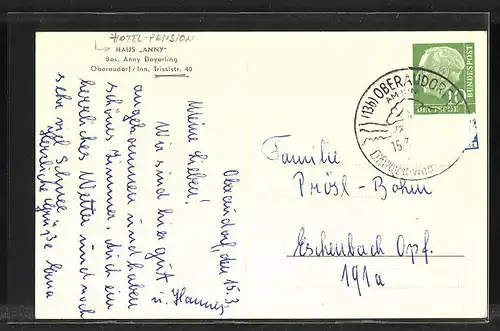 HOTEL-PENSION
HAUS „ANNY"
Bes. Anny Doyerling
Oberaudorf/Inn, Trisslstr. 40
Oberaudorf, den 15.3.
Meine Lieben!
Wir sind hier gut
angekommen und haben
schönes Zimmer, durch ein
herrliches Wetter und noch
sehr viel Schnee.
Herzliche Grüße Erna
u. Hannes
(13b) OBERAUDORF
AM INN
15.3
10
DEUTSCHE
BUNDESPOST
Familie
Prösl-Böhm
Eschenbach Opf.
191a